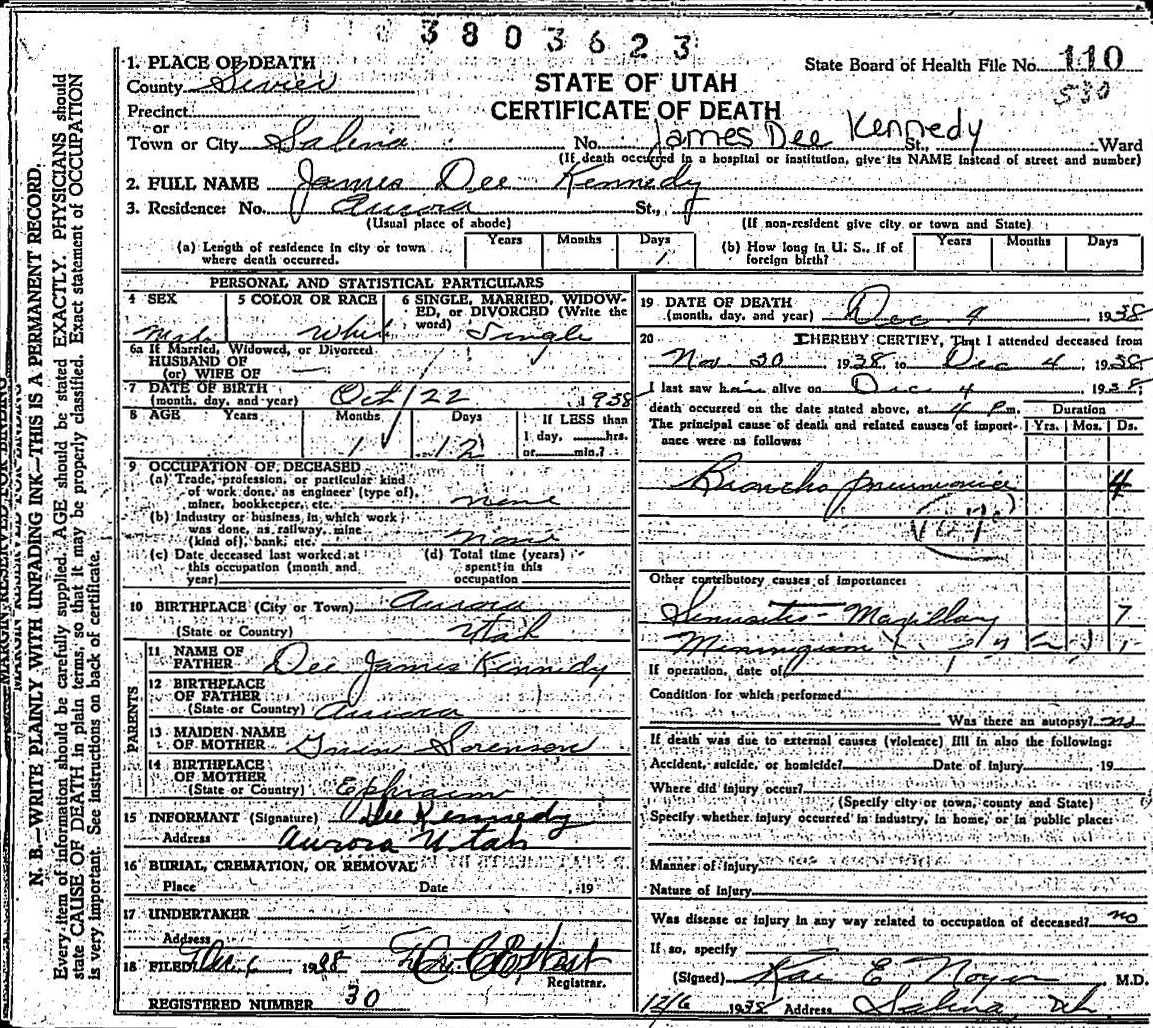 3803623
1. PLACE OF DEATH
County Sevier
State Board of Health File No. 110
530
STATE OF UTAH
CERTIFICATE OF DEATH
Precinct
or
Town or City Salina No. James Dee Kennedy St., Ward
(If death occurred in a hospital or institution, give its NAME instead of street and number)
2. FULL NAME James Dee Kennedy
3. Residence: No. Aurora St.,
(Usual place of abode) (If non-resident give city or town and State)
(a) Length of residence in city or town where death occurred. Years Months Days 1
(b) How long in U. S., if of foreign birth? Years Months Days
PERSONAL AND STATISTICAL PARTICULARS
4 SEX 5 COLOR OR RACE 6 SINGLE, MARRIED, WIDOW-
ED, or DIVORCED (Write the
word) Single
Male White
6a If Married, Widowed, or Divorced
HUSBAND OF
(or) WIFE OF
7 DATE OF BIRTH
(month, day, and year) Oct 22 1938
8 AGE Years Months Days If LESS than
1 12 1 day, hrs.
or min.?
9 OCCUPATION OF DECEASED
(a) Trade, profession, or particular kind
of work done, as engineer (type of),
miner, bookkeeper, etc. none
(b) Industry or business, in which work
was done, as railway, mine
(kind of), bank, etc. none
(c) Date deceased last worked at
this occupation (month and
year)
(d) Total time (years)
spent in this
occupation
10 BIRTHPLACE (City or Town) Aurora
(State or Country) Utah
PARENTS
11 NAME OF
FATHER Dee James Kennedy
12 BIRTHPLACE
OF FATHER
(State or Country) Aurora
13 MAIDEN NAME
OF MOTHER Sorenson
14 BIRTHPLACE
OF MOTHER
(State or Country) Ephraim
15 INFORMANT (Signature) Dee Kennedy
Address Aurora Utah
16 BURIAL, CREMATION, OR REMOVAL
Place Date , 19
17 UNDERTAKER
Address
18 FILED Dec. 6 1938
Registrar.
REGISTERED NUMBER 30
19 DATE OF DEATH
(month, day, and year) Dec 4 , 1938
20 I HEREBY CERTIFY, That I attended deceased from
Nov. 30 1938, to Dec 4, 1938.
I last saw him alive on Dec 4 1938,
death occurred on the date stated above, at 4 P.m. Duration
The principal cause of death and related causes of import-
ance were as follows: Yrs. Mos. Ds.
Broncho pneumonia 4
Other contributory causes of importance:
Sinusitis - Maxillary 7
If operation, date of
Condition for which performed
Was there an autopsy? no
If death was due to external causes (violence) fill in also the following:
Accident, suicide, or homicide? Date of injury , 19
Where did injury occur?
(Specify city or town, county and State)
Specify whether injury occurred in industry, in home, or in public place:
Manner of injury
Nature of injury
Was disease or injury in any way related to occupation of deceased? no
If so, specify
(Signed) E Noyes M.D.
12/6 1938 Address Salina,
MARGIN RESERVED FOR BINDING
N. B.—WRITE PLAINLY WITH UNFADING INK—THIS IS A PERMANENT RECORD.
Every item of information should be carefully supplied. AGE should be stated EXACTLY. PHYSICIANS should
state CAUSE OF DEATH in plain terms, so that it may be properly classified. Exact statement of OCCUPATION
is very important. See instructions on back of certificate.